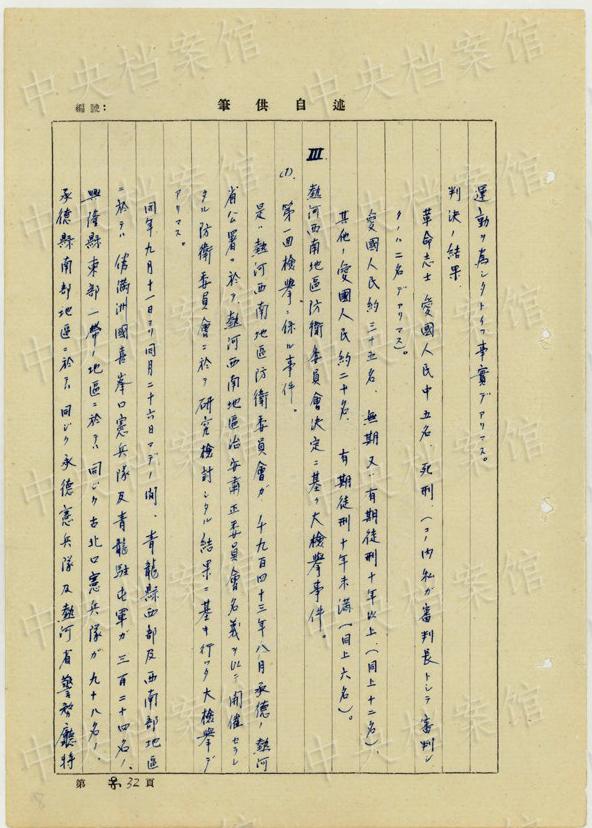 編號:
筆供自述
運動ヲ為シタトイフ事實デアリマス。
判決ノ結果
革命志士愛國人民中五名、死刑、(コノ内私ガ審判長トシテ審判シ
タノハ二名デアリマス)。
愛國人民約三十五名、無期又ハ有期徒刑十年以上(同上十二名)
其他ノ愛國人民約二十名、有期徒刑十年未滿(同上六名)。
III 熱河西南地區防衛委員會決定ニ基ク大檢擧事件。
(1) 第一回檢擧ニ係ル事件。
是ハ熱河西南地區防衛委員會ガ千九百四十三年八月承德ノ熱河
省公署ニ於テ熱河西南地區治安肅正委員會名義ヲ以テ開催セラレ
タル防衛委員會ニ於テ研究檢討シタル結果ニ基キ行ッタ大檢擧デ
アリマス。
同年九月十一日ヨリ同月二十六日マデノ間、青龍縣西部及西南部地區
ニ於テハ偽滿洲國喜峯口憲兵隊及青龍駐屯軍ガ三百二十四名ノ、
興隆縣東部一帶ノ地區ニ於テハ同ジク古北口憲兵隊ガ九十八名ノ、
承德縣南部地區ニ於テハ同ジク承德憲兵隊及熱河省警務廳特
第 32 頁
中央档案馆